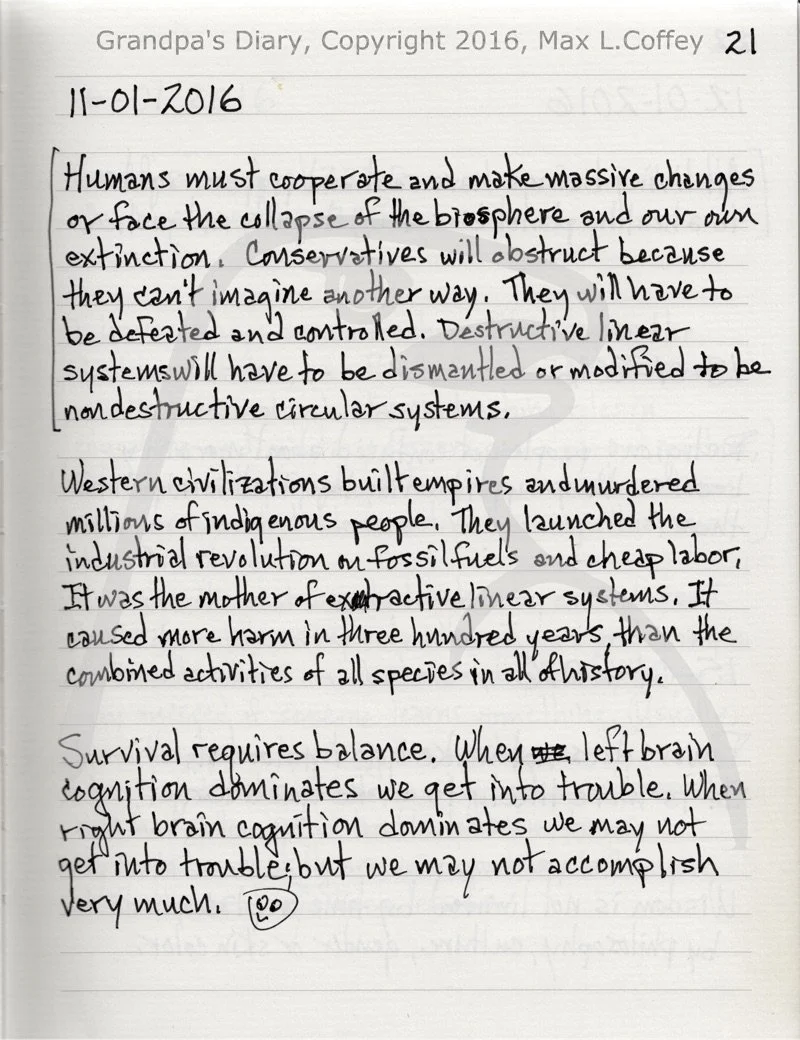 Grandpa's Diary, Copyright 2016, Max L.Coffey 21
11-01-2016
Humans must cooperate and make massive changes
or face the collapse of the biosphere and our own
extinction. Conservatives will obstruct because
they can't imagine another way. They will have to
be defeated and controlled. Destructive linear
systems will have to be dismantled or modified to be
nondestructive circular systems.
Western civilizations built empires and murdered
millions of indigenous people. They launched the
industrial revolution on fossil fuels and cheap labor.
It was the mother of extractive linear systems. It
caused more harm in three hundred years, than the
combined activities of all species in all of history.
Survival requires balance. When left brain
cognition dominates we get into trouble. When
right brain cognition dominates we may not
get into trouble, but we may not accomplish
very much.